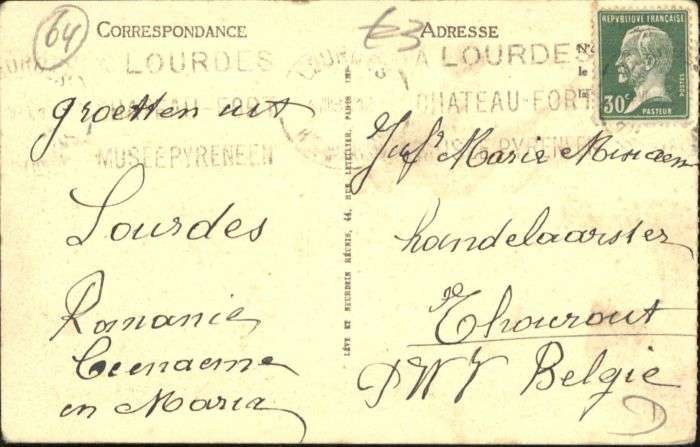 64
CORRESPONDANCE
€3
ADRESSE
RÉPVBLIQUE FRANÇAISE
30c
POSTES
PASTEUR
A LOURDES
CHATEAU-FORT
MUSEE PYRENEEN
A LOURDES
CHATEAU-FORT
MUSEE PYRENEEN
groetten uit
Lourdes
Romanie
en Maria
LÉVY ET NEURDEIN RÉUNIS, 44, RUE LETELLIER, PARIS IMP.
Jufr Marie
handelaarster
Thourout
PWV Belgie
D